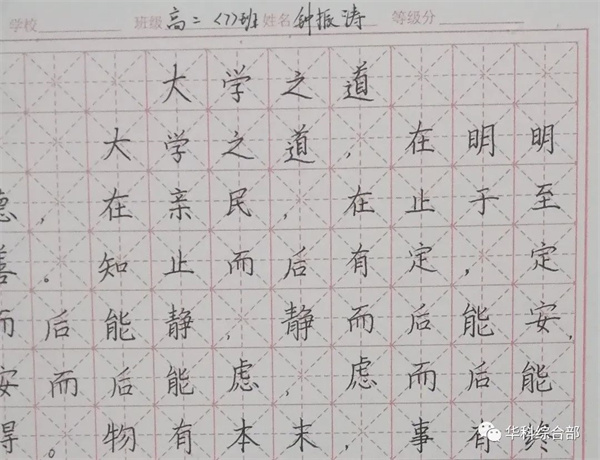 学校 班级 高二〈7〉班 姓名 钟振涛 等级分
大学之道
大学之道，在明明
德，在亲民，在止于至
善。知止而后有定，定
而后能静，静而后能安，
安而后能虑，虑而后能
得。物有本末，事有终
华科综合部